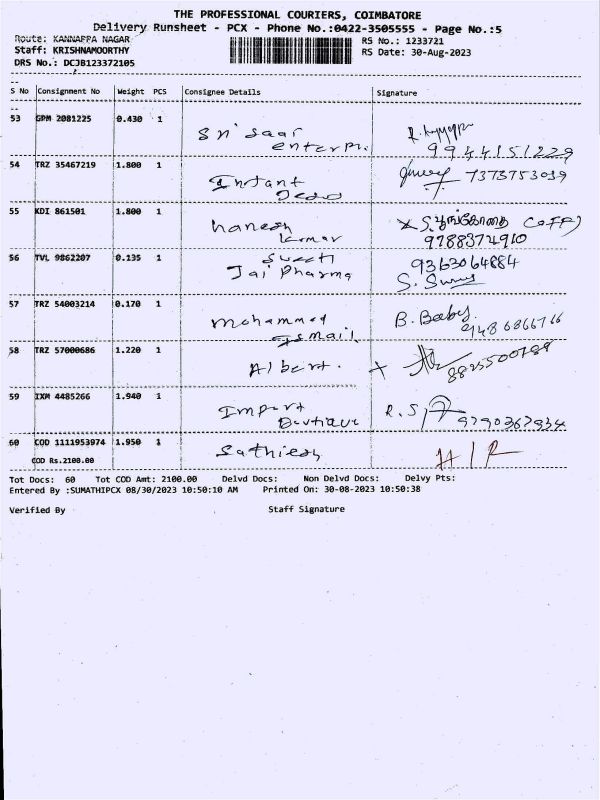 THE PROFESSIONAL COURIERS, COIMBATORE
Delivery Runsheet - PCX - Phone No.:0422-3505555 - Page No.:5
Route: KANNAPPA NAGAR
RS No.: 1233721
Staff: KRISHNAMOORTHY
RS Date: 30-Aug-2023
DRS No.: DCJB123372105
S No Consignment No Weight PCS Consignee Details Signature
53 GPM 2081225 0.430 1 Sri Saai
enterpri. 9944151229
54 TRZ 35467219 1.800 1 Instant 7373753039
55 KDI 861501 1.800 1 Kumar
9788374910
56 TVL 9862207 0.135 1 Sweeti 9363064884
Jai Pharma S.
57 TRZ 54003214 0.170 1 Mohammed B. Baby.
Ismail.
58 TRZ 57000686 1.220 1 Albert.
59 IXM 4485266 1.940 1 Import R.S
Boutique
60 COD 1111953974 1.950 1 Sathiesh
COD Rs.2100.00
Tot Docs: 60 Tot COD Amt: 2100.00 Delvd Docs: Non Delvd Docs: Delvy Pts:
Entered By :SUMATHIPCX 08/30/2023 10:50:10 AM Printed On: 30-08-2023 10:50:38
Verified By Staff Signature